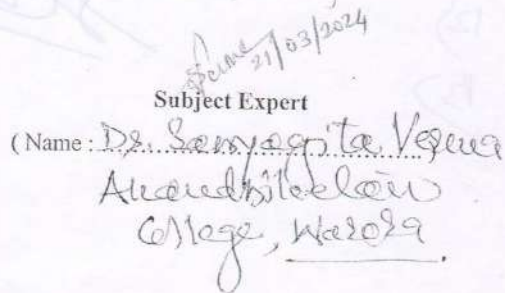 21/03/2024
Subject Expert
( Name : Dr. Sanyogita Verma
Anandniketan
College, Warora.